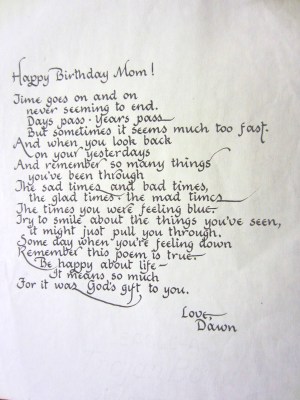 Happy Birthday Mom!
Time goes on and on
never seeming to end.
Days pass · Years pass
But sometimes it seems much too fast.
And when you look back
on your yesterdays
And remember so many things
you've been through
The sad times and bad times,
the glad times · the mad times
The times you were feeling blue.
Try to smile about the things you've seen,
it might just pull you through.
Some day when you're feeling down
Remember this poem is true.
Be happy about life –
It means so much
For it was God's gift to you.
Love,
Dawn